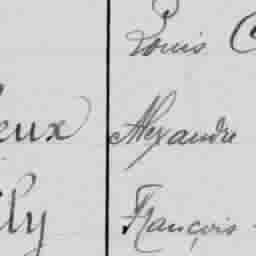 Louis C
eux Alexandre
lly François